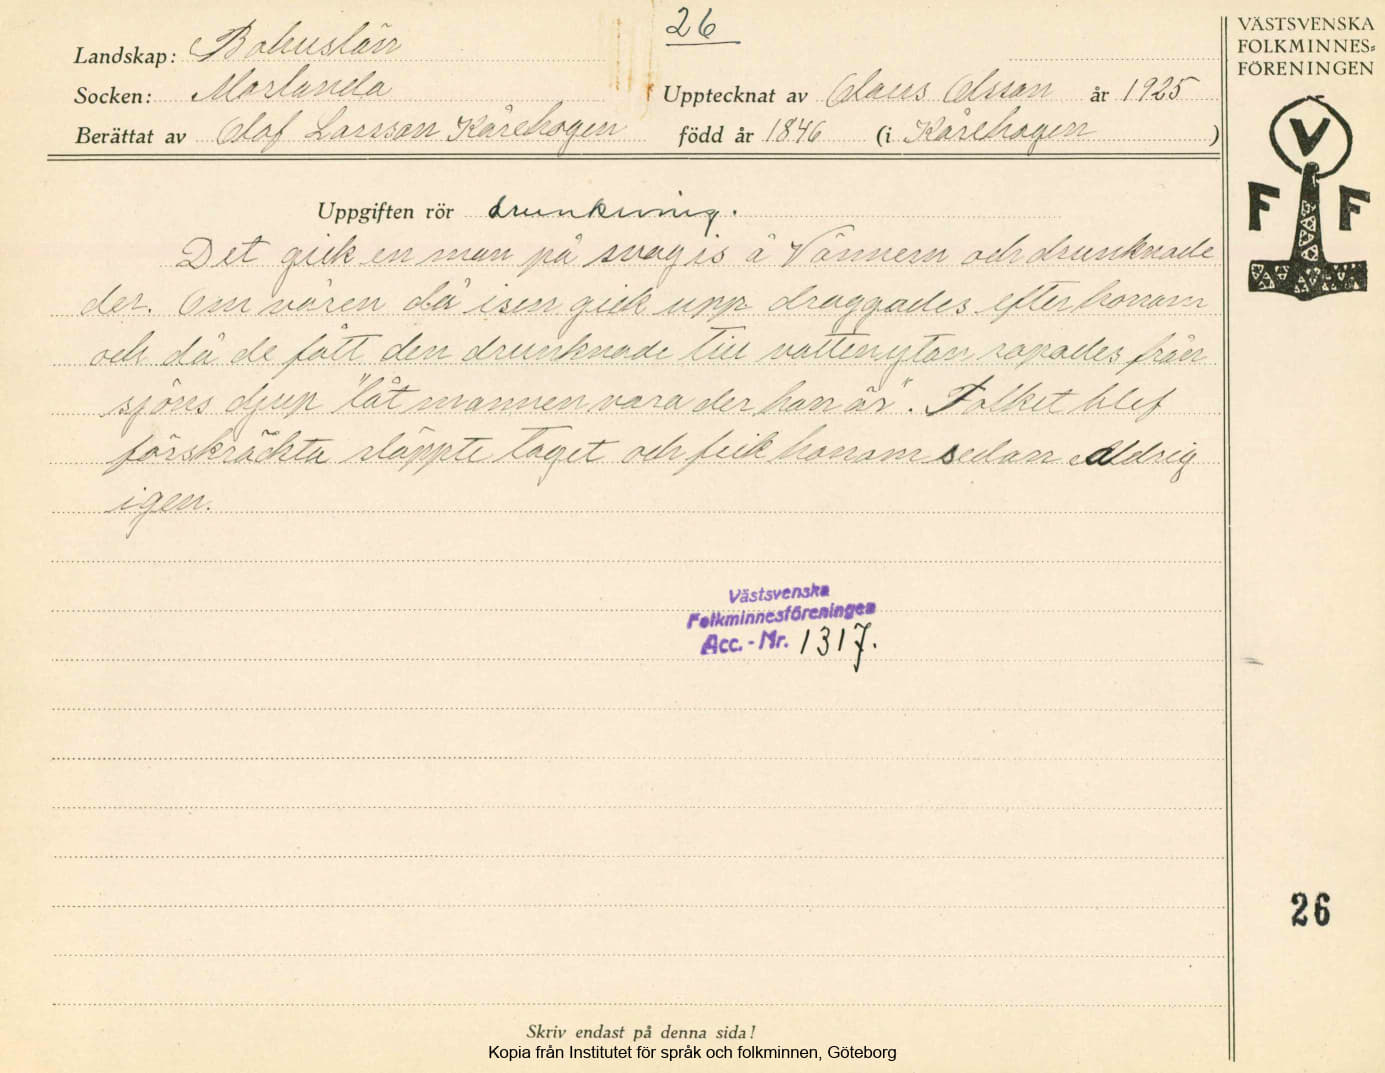 26
VÄSTSVENSKA
FOLKMINNES=
FÖRENINGEN
Landskap: Bohuslän
Socken: Morlanda
Upptecknat av Olaus Olsson år 1925
Berättat av Olof Larsson Kårehogen född år 1846 (i Kårehogen )
V
F F
Uppgiften rör drunkning.
Det gick en man på svag is å Vännern och drunknade
der. Om våren då isen gick upp draggades efter honom
och då de fått den drunknade till vattenytan ropades från
sjöns djup "låt mannen vara der han är". Folket blef
förskräckta släppte taget och feik honom sedan aldrig
igen.
Västsvenska
Folkminnesföreningen
Acc. - Nr. 1317.
26
Skriv endast på denna sida!
Kopia från Institutet för språk och folkminnen, Göteborg